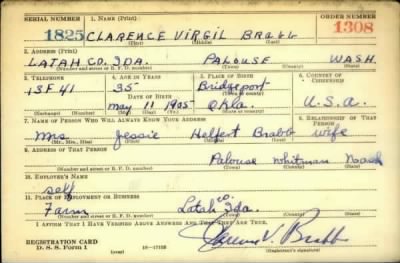 SERIAL NUMBER 1. NAME (Print) ORDER NUMBER
1825 CLARENCE VIRGIL BRABB 1308
(First) (Middle) (Last)
2. ADDRESS (Print)
LATAH CO. IDA. PALOUSE WASH.
(Number and street or R. F. D. number) (Town) (County) (State)
3. TELEPHONE 4. AGE IN YEARS 5. PLACE OF BIRTH 6. COUNTRY OF CITIZENSHIP
13F41 35 Bridgeport
DATE OF BIRTH (Town or county)
May 11 1905 Okla. U.S.A.
(Exchange) (Number) (Mo.) (Day) (Yr.) (State or country)
7. NAME OF PERSON WHO WILL ALWAYS KNOW YOUR ADDRESS 8. RELATIONSHIP OF THAT PERSON
Mrs. Jessie Helfert Brabb wife
(Mr., Mrs., Miss) (First) (Middle) (Last)
9. ADDRESS OF THAT PERSON
Palouse Whitman Wash
(Number and street or R. F. D. number) (Town) (County) (State)
10. EMPLOYER'S NAME
self
11. PLACE OF EMPLOYMENT OR BUSINESS
Farm Latah co. Ida.
(Number and street or R. F. D. number) (Town) (County) (State)
I AFFIRM THAT I HAVE VERIFIED ABOVE ANSWERS AND THAT THEY ARE TRUE.
REGISTRATION CARD
D. S. S. Form 1 (over) 16—17105 Clarence V. Brabb
(Registrant's signature)